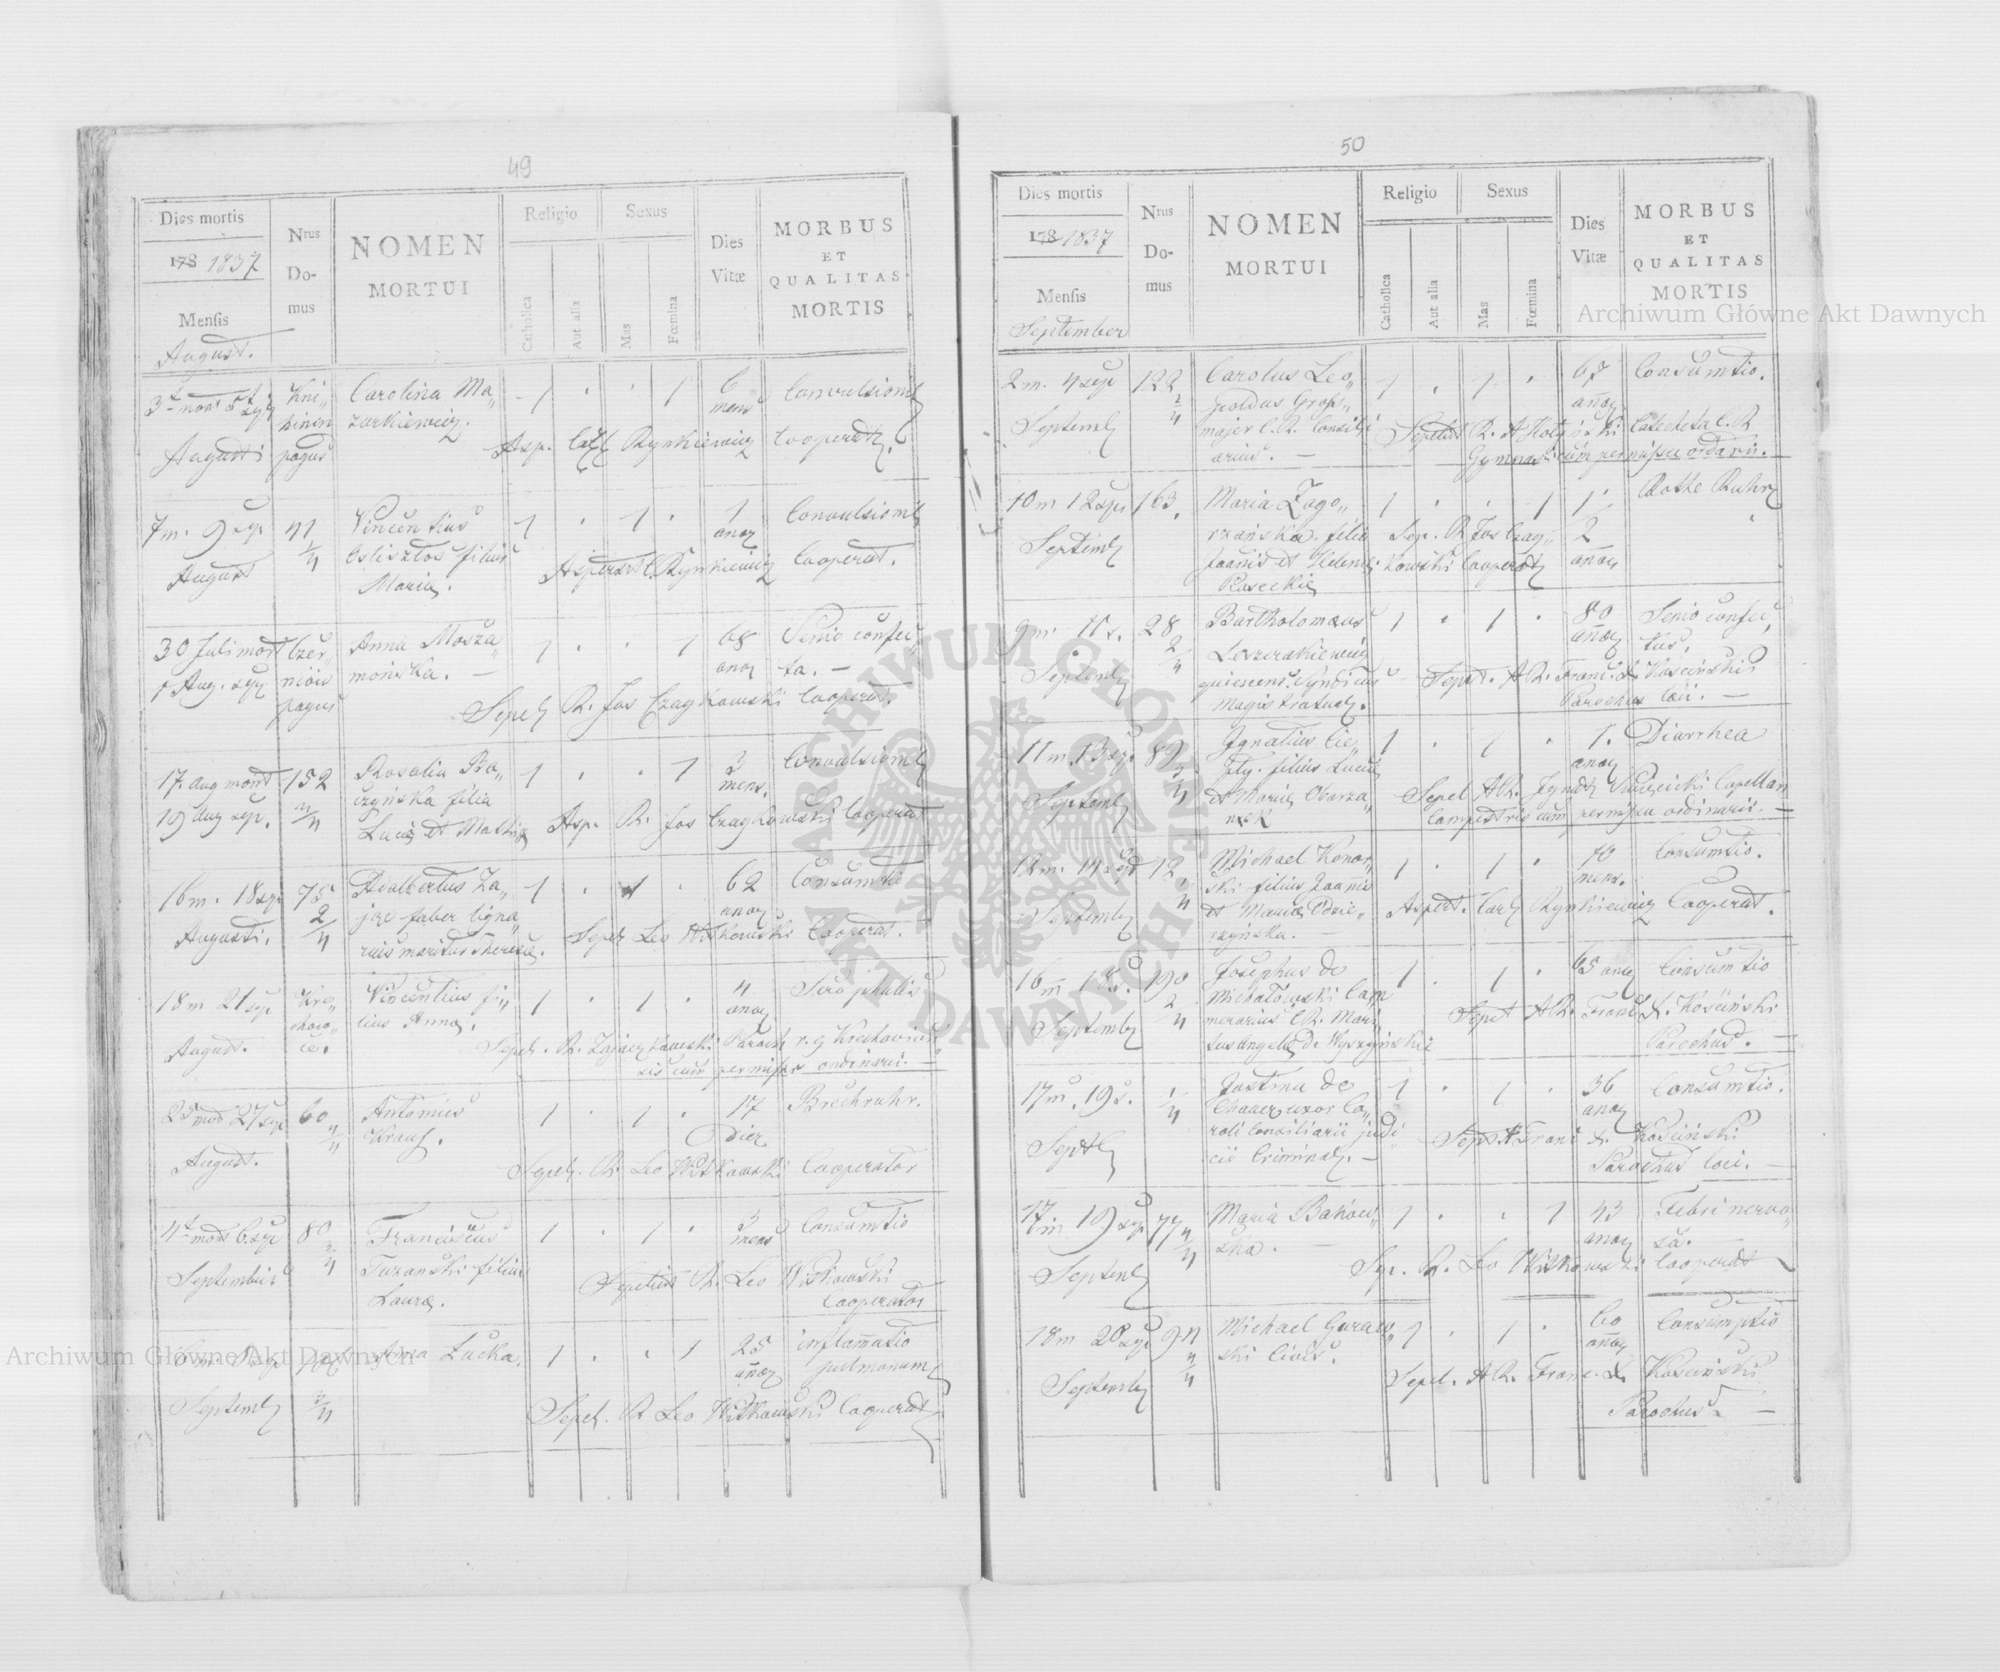 49
Dies mortis
178 1837
Mensis
August.
Nrus
Do-
mus
NOMEN
MORTUI
Religio
Catholica
Aut alia
Sexus
Mas
Fœmina
Dies
Vitæ
MORBUS
ET
QUALITAS
MORTIS
Kni„
hinin
pagus
Augusti
Carolina Ma„
zurkiewicz.
1 . . 1
6
mens
Convulsion
Asp. Rynkiewicz Cooperat.
7 m. 9 sep.
August
Vincentius
filius
Mariæ.
1 . 1 .
1
anor
Convulsion
Aspersit C. Rynkiewicz Cooperat.
30 Juli mort
1 Aug. sep
Czer„
niow
pagus
Anna Mosza„
mońska. —
1 . . 1
68
anor
Senio confec„
ta. —
Sepel R. Jos Czaykowski Cooperat.
17. Aug mort
19 Aug sep.
152
Rosalia Ba„
czyńska filia
Lucæ et
1 . . 1
3
mens.
Convulsion
Asp. R. Jos Czaykowski Cooperat
16 m. 18 sep
Augusti.
75
2/4
Adalbertus Za„
jac faber ligna„
rius maritus Theresiæ.
1 . 1 .
62
anor
Consumtio
Sepel Leo Witkowski Cooperat.
18 m 21 sep
August.
Kre„
chow„
ce.
Vincentius fi„
lius Annæ.
1 . 1 .
4
anor
Scrophulis
Sepel. R. Paroch r. g. Krechovien
sis cum permissu ordinarii. —
25 mort 27 sep
August.
60
Antonius
Kraus.
1 . 1 .
17
dier
Brechruhr.
Sepel. R. Leo Witkowski Cooperator
4 mort 6. sep
Septembris
80
Franciscus
Turanski filius
Lauræ.
1 . 1 .
3
mens
Consumtio
Sepelivit R. Leo Witkowski
Cooperator
Septemb
Anna Łucka.
1 . . 1
25
añor
inflam̄atio
pulmonum
Sepel. R Leo Witkowski Cooperat
50
Dies mortis
178 1837
Mensis
September
Nrus
Do-
mus
NOMEN
MORTUI
Religio
Catholica
Aut alia
Sexus
Mas
Fœmina
Dies
Vitæ
MORBUS
ET
QUALITAS
MORTIS
2 m. 4 sep
Septemb
122
2/4
Carolus Leo„
poldus Gross„
majer C. R. Consili
arius. —
1 . 1 .
67
anor
Consumtio.
Sepelivit R. A Catecheta C. R
Gymnasii cum permissu ordarii. —
10 m 12 sep
Septemb
163.
Maria Zago„
rzańska filia
Joanis et Helenæ
Roseckie
1 . . 1
1
2
anor
Rothe Ruhr
Sep. R Jos Czay„
kowski Cooperat
9 m. 11 s.
Septemb
28
2/4
Bartholomæus
Leszczakiewicz
quiescens Syndicus
magistratual.
1 . 1 .
80
anor
Senio confec„
tus.
Sepel. A R. Franc. X. Kosinski
Parochus loci. —
11 m. 13 sep.
Septemb
89
Ignatius Cie„
filius Lucæ
et Mariæ Obarza„
nek
1 . 1 .
1.
anor
Diarrhea
Sepel A R. Ignat Capellan
Campestris cum permissu ordinarii. —
12 m. 14 sep
Septemb
12
Michael Konar„
ski filius Joannis
et Mariæ
1 . 1 .
10
mens.
Consumtio.
Aspers. Carl Rynkiewicz Cooperat.
16 m 18 s.
Septemb
190
2/4
Josephus de
Michałowski Cam
merarius C. R. Mari„
tus Angelæ de Wyszyńskie
1 . 1 .
65 anor
Consumtio
Sepel A R. Franc X. Kosinski
Parochus. —
17 m. 19 s.
Septb
Justina de
uxor Ca„
roli Consiliarii judi
cii Criminal. —
1 . 1 .
36
anor
Consumtio.
Sepel Franc X. Kosinski
Parochus loci. —
17 m 19 sep
Septemb
77
Maria Bahow„
ska. —
1 . . 1
43
anor
Febri nervo„
sa.
Sep. R. Leo Witkowski Cooperat
18 m 20 sep
Septemb
94
Michael Guraw„
ski Civis.
1 . 1 .
60
añor
Consumptio
Sepel. A R. Franc. X. Kosinski
Parochus. —
ARCHIWUM GŁÓWNE AKT DAWNYCH
Archiwum Główne Akt Dawnych
Archiwum Główne Akt Dawnych